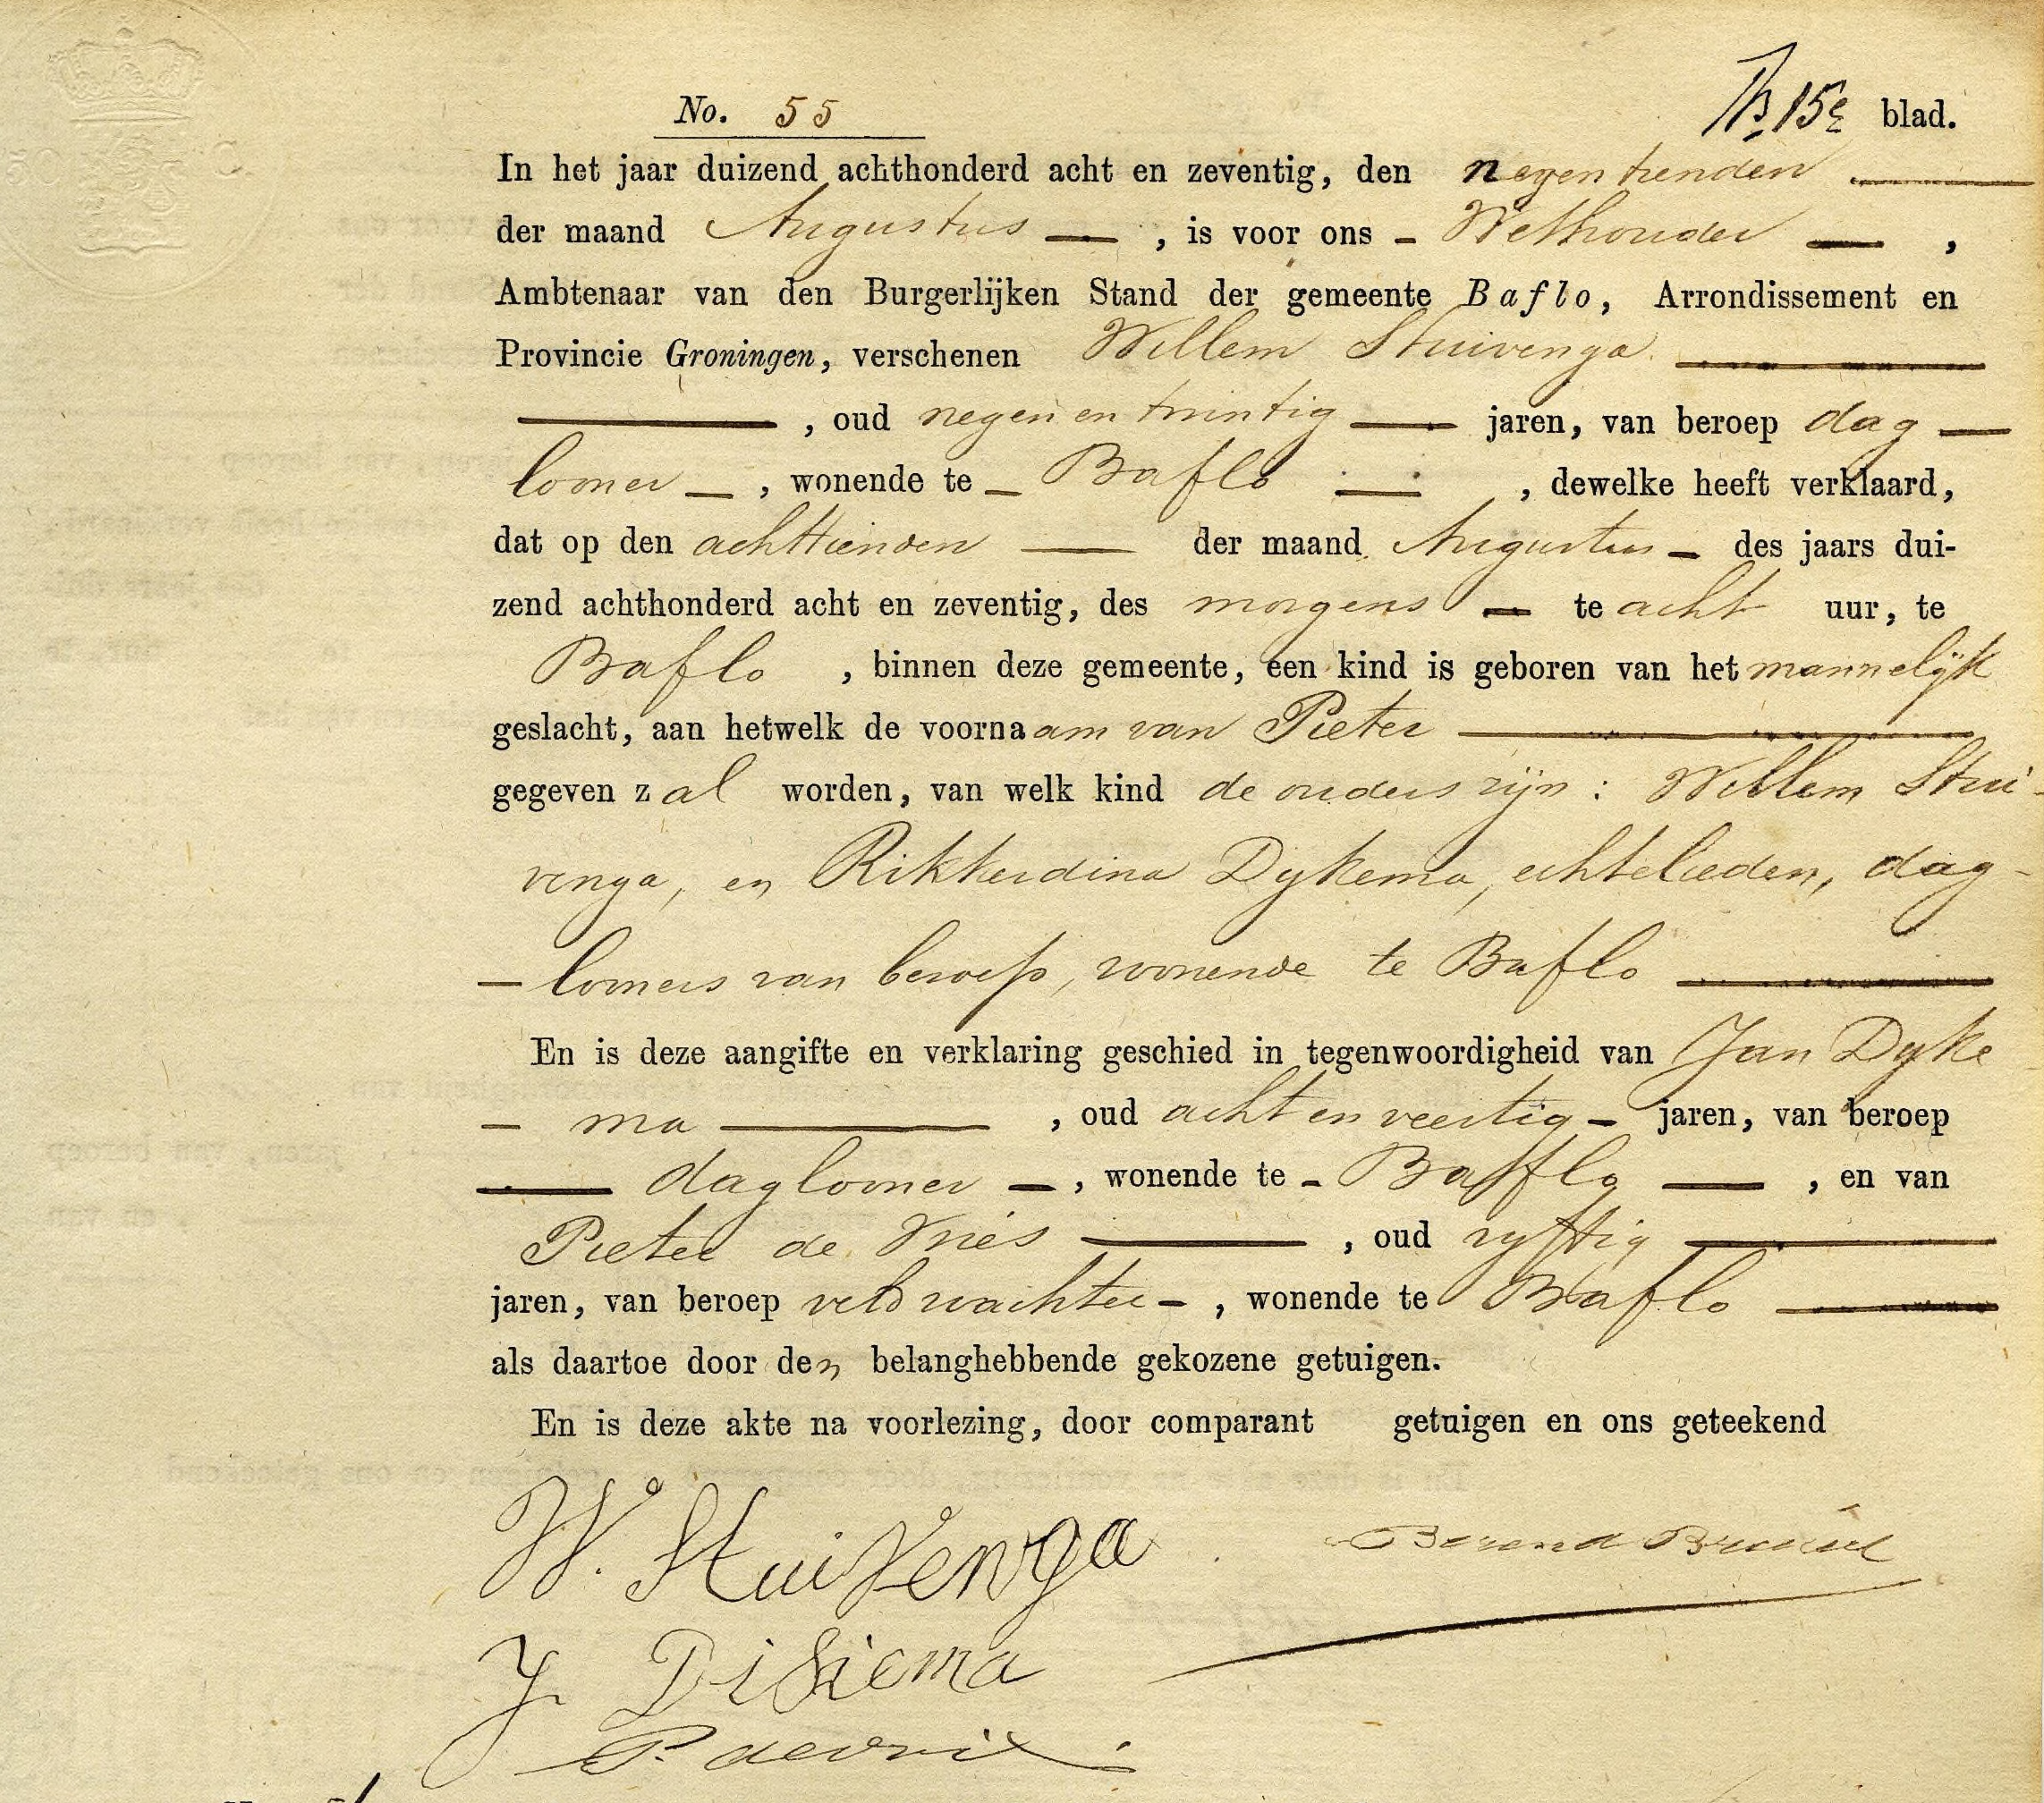 No. 55
15e blad.
In het jaar duizend achthonderd acht en zeventig, den negentienden
der maand Augustus, is voor ons Wethouder,
Ambtenaar van den Burgerlijken Stand der gemeente Baflo, Arrondissement en
Provincie Groningen, verschenen Willem Stuivenga
, oud negen en twintig jaren, van beroep dag
looner, wonende te Baflo, dewelke heeft verklaard,
dat op den achttienden der maand Augustus des jaars dui-
zend achthonderd acht en zeventig, des morgens te acht uur, te
Baflo, binnen deze gemeente, een kind is geboren van het mannelijk
geslacht, aan hetwelk de voornaam van Pieter
gegeven zal worden, van welk kind de ouders zijn: Willem Stui-
venga, en Rikkerdina Dykema, echtelieden, dag-
-looners van beroep, wonende te Baflo
En is deze aangifte en verklaring geschied in tegenwoordigheid van Jan Dyke
- ma, oud acht en veertig jaren, van beroep
daglooner, wonende te Bafflo, en van
Pieter de Vries, oud vyftig
jaren, van beroep veldwachter, wonende te Baflo
als daartoe door den belanghebbende gekozene getuigen.
En is deze akte na voorlezing, door comparant getuigen en ons geteekend
W. Stuivenga
Berend
J Dikema
P. devries